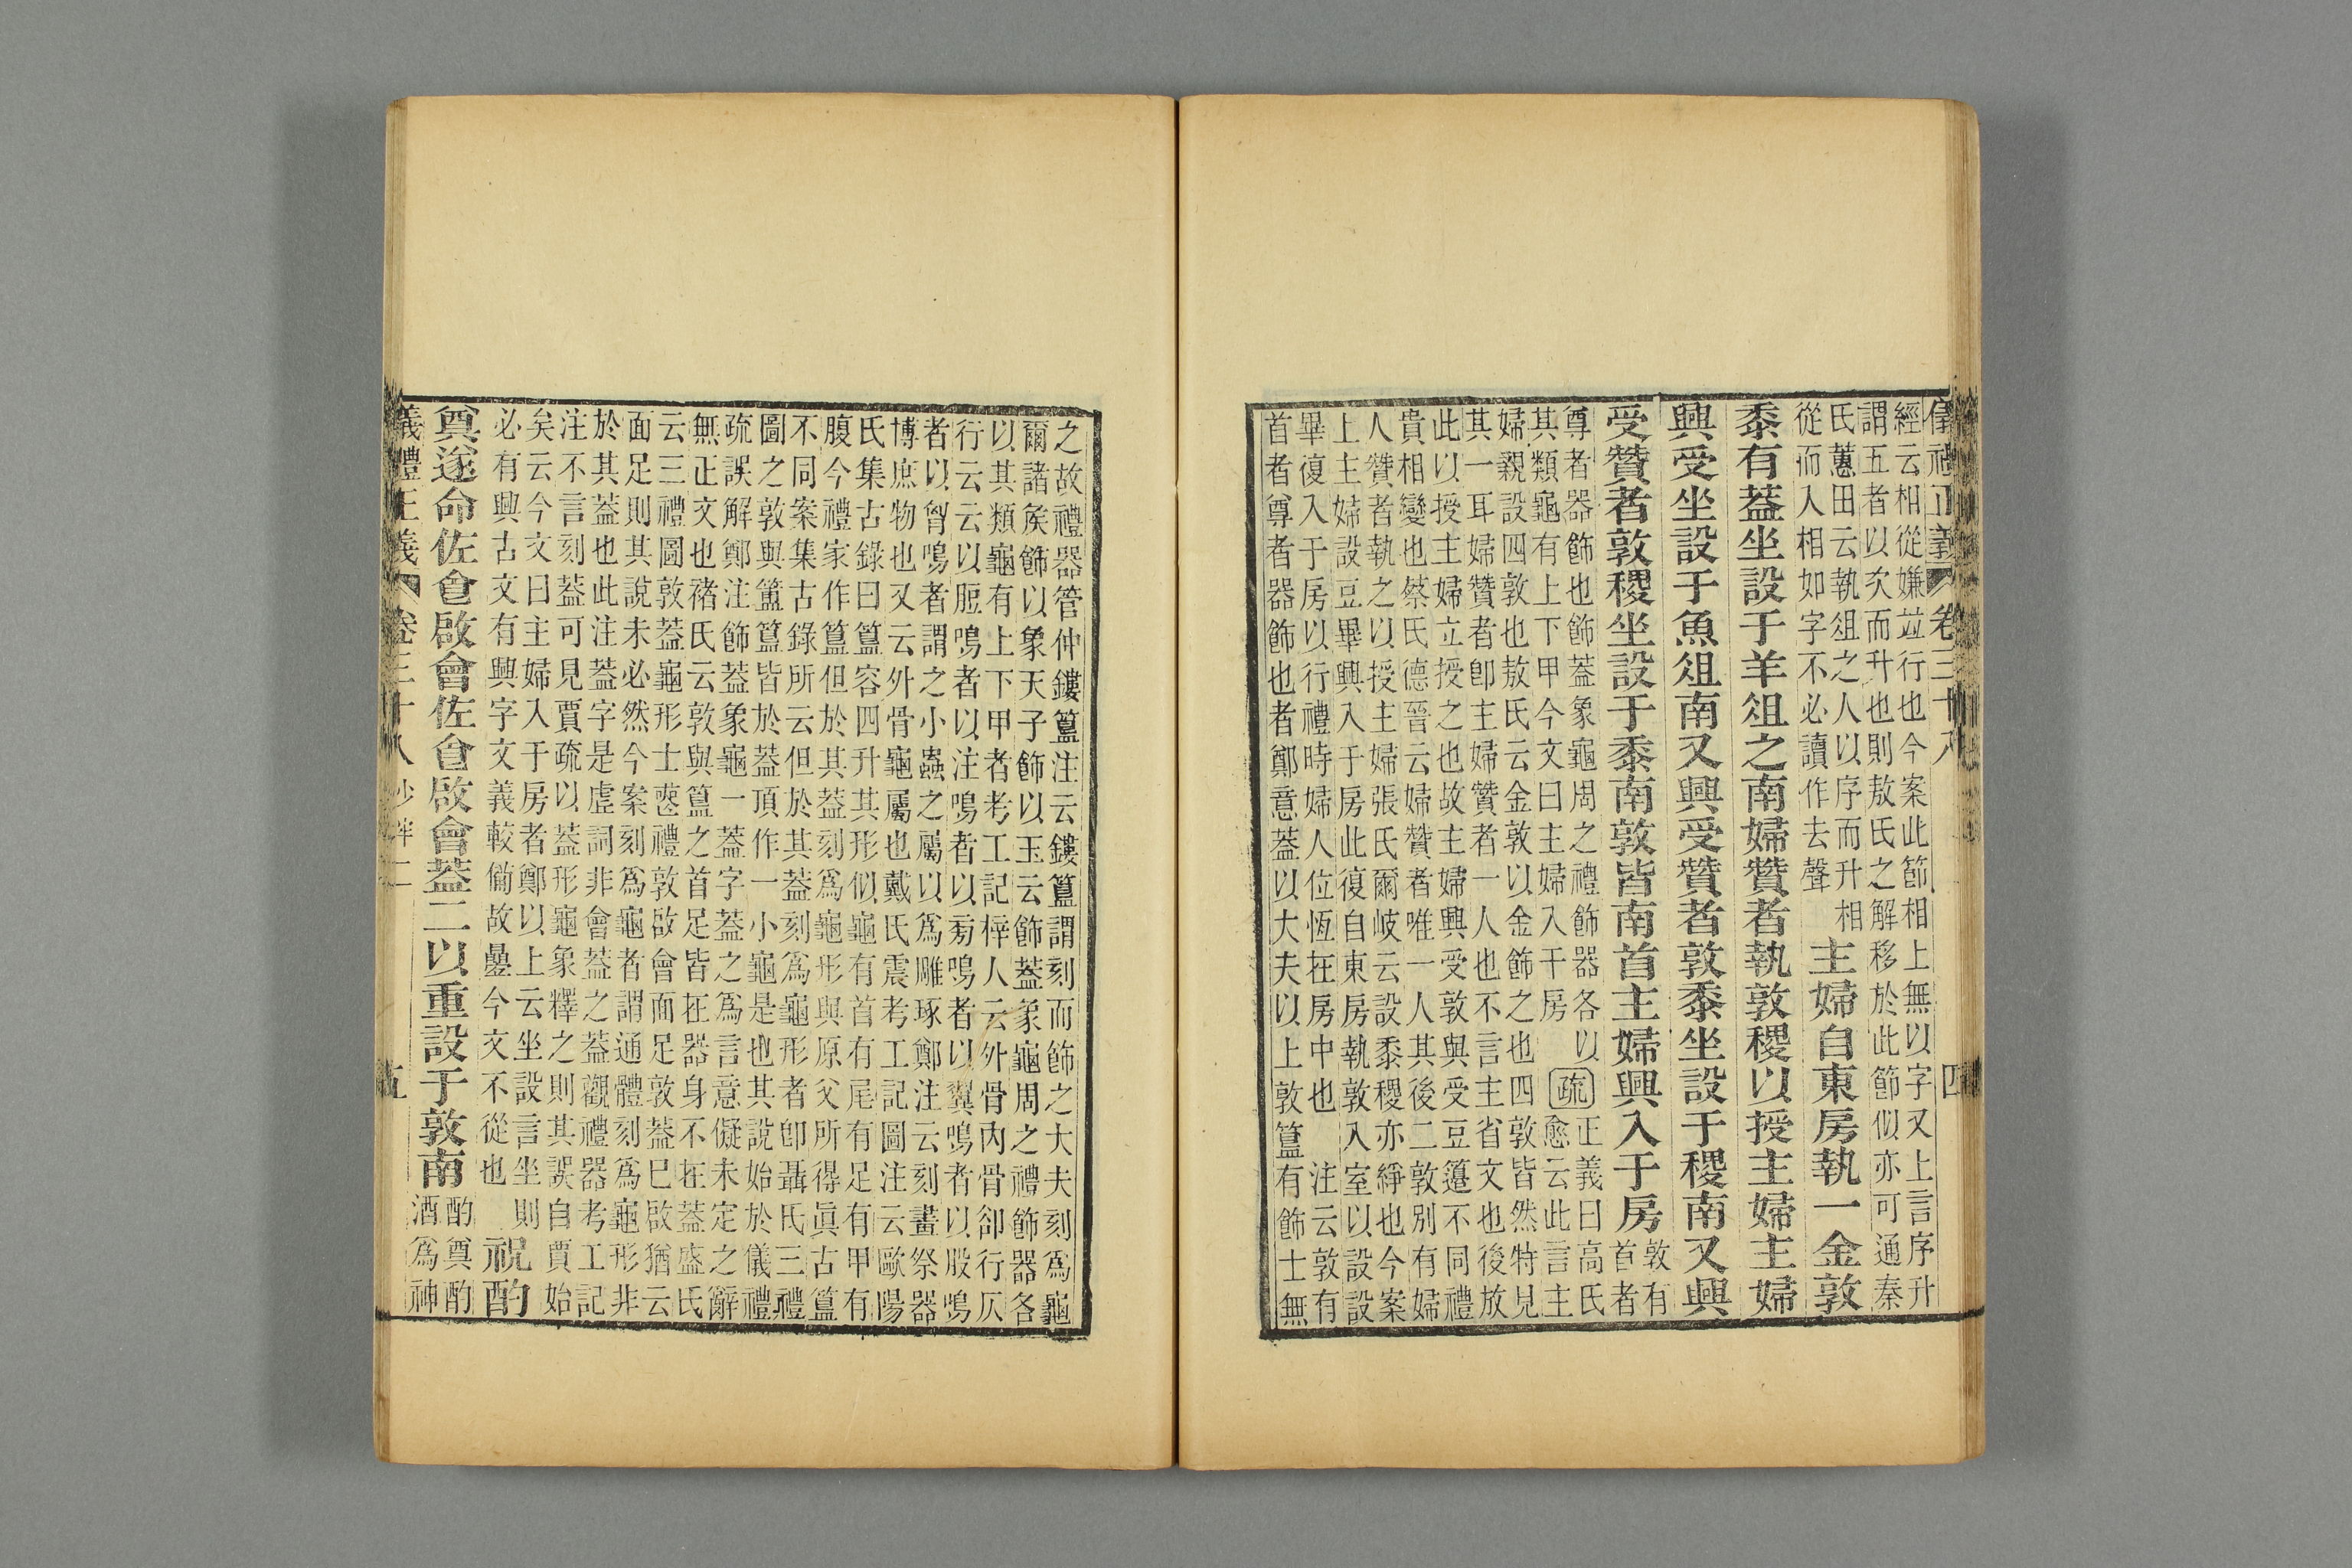 儀禮正義 卷三十八 四
經云相從嫌竝行也今案此節相上無以字又上言序升
謂五者以次而升也則敖氏之解移於此節似亦可通秦
氏蕙田云執俎之人以序而升相
從而入相如字不必讀作去聲
主婦自東房執一金敦
黍有蓋坐設于羊俎之南婦贊者執敦稷以授主婦主婦
興受坐設于魚俎南又興受贊者敦黍坐設于稷南又興
受贊者敦稷坐設于黍南敦皆南首主婦興入于房
敦有
首者
尊者器飾也飾蓋象龜周之禮飾器各以
其類龜有上下甲今文曰主婦入于房
疏
正義曰高氏
愈云此言主
婦親設四敦也敖氏云金敦以金飾之也四敦皆然特見
其一耳婦贊者卽主婦贊者一人也不言主省文也後放
此以授主婦立授之也故主婦興受敦與受豆籩不同禮
貴相變也蔡氏德晉云婦贊者唯一人其後二敦別有婦
人贊者執之以授主婦張氏爾岐云設黍稷亦綪也今案
上主婦設豆畢興入于房此復自東房執敦入室以設設
畢復入于房以行禮時婦人位恆在房中也 注云敦有
首者尊者器飾也者鄭意蓋以大夫以上敦簋有飾士無
之故禮器管仲鏤簋注云鏤簋謂刻而飾之大夫刻爲龜
爾諸矦飾以象天子飾以玉云飾蓋象龜周之禮飾器各
以其類龜有上下甲者考工記梓人云外骨內骨卻行仄
行云云以脰鳴者以注鳴者以旁鳴者以翼鳴者以股鳴
者以胷鳴者謂之小蟲之屬以爲雕琢鄭注云刻畫祭器
博庶物也又云外骨龜屬也戴氏震考工記圖注云歐陽
氏集古錄曰簋容四升其形似龜有首有尾有足有甲有
腹今禮家作簋但於其蓋刻爲龜形與原父所得眞古簋
不同案集古錄所云但於其蓋刻爲龜形者卽聶氏三禮
圖之敦與簠簋皆於蓋頂作一小龜是也其說始於儀禮
疏誤解鄭注飾蓋象龜一蓋字蓋之爲言意儗未定之辭
無正文也褚氏云敦與簋之首足皆在器身不在蓋盛氏
云三禮圖敦蓋龜形士喪禮敦啟會面足敦蓋巳啟猶云
面足則其說未必然今案刻爲龜者謂通體刻爲龜形非
於其蓋也此注蓋字是虛詞非會蓋之蓋觀禮器考工記
注不言刻蓋可見賈疏以蓋形龜象釋之則其誤自賈始
矣云今文曰主婦入于房者鄭以上云坐設言坐則
必有興古文有興字文義較備故疊今文不從也
祝酌
奠遂命佐會啟會佐會啟會蓋二以重設于敦南
酌奠酌
酒爲神
儀禮正義 卷三十八 五